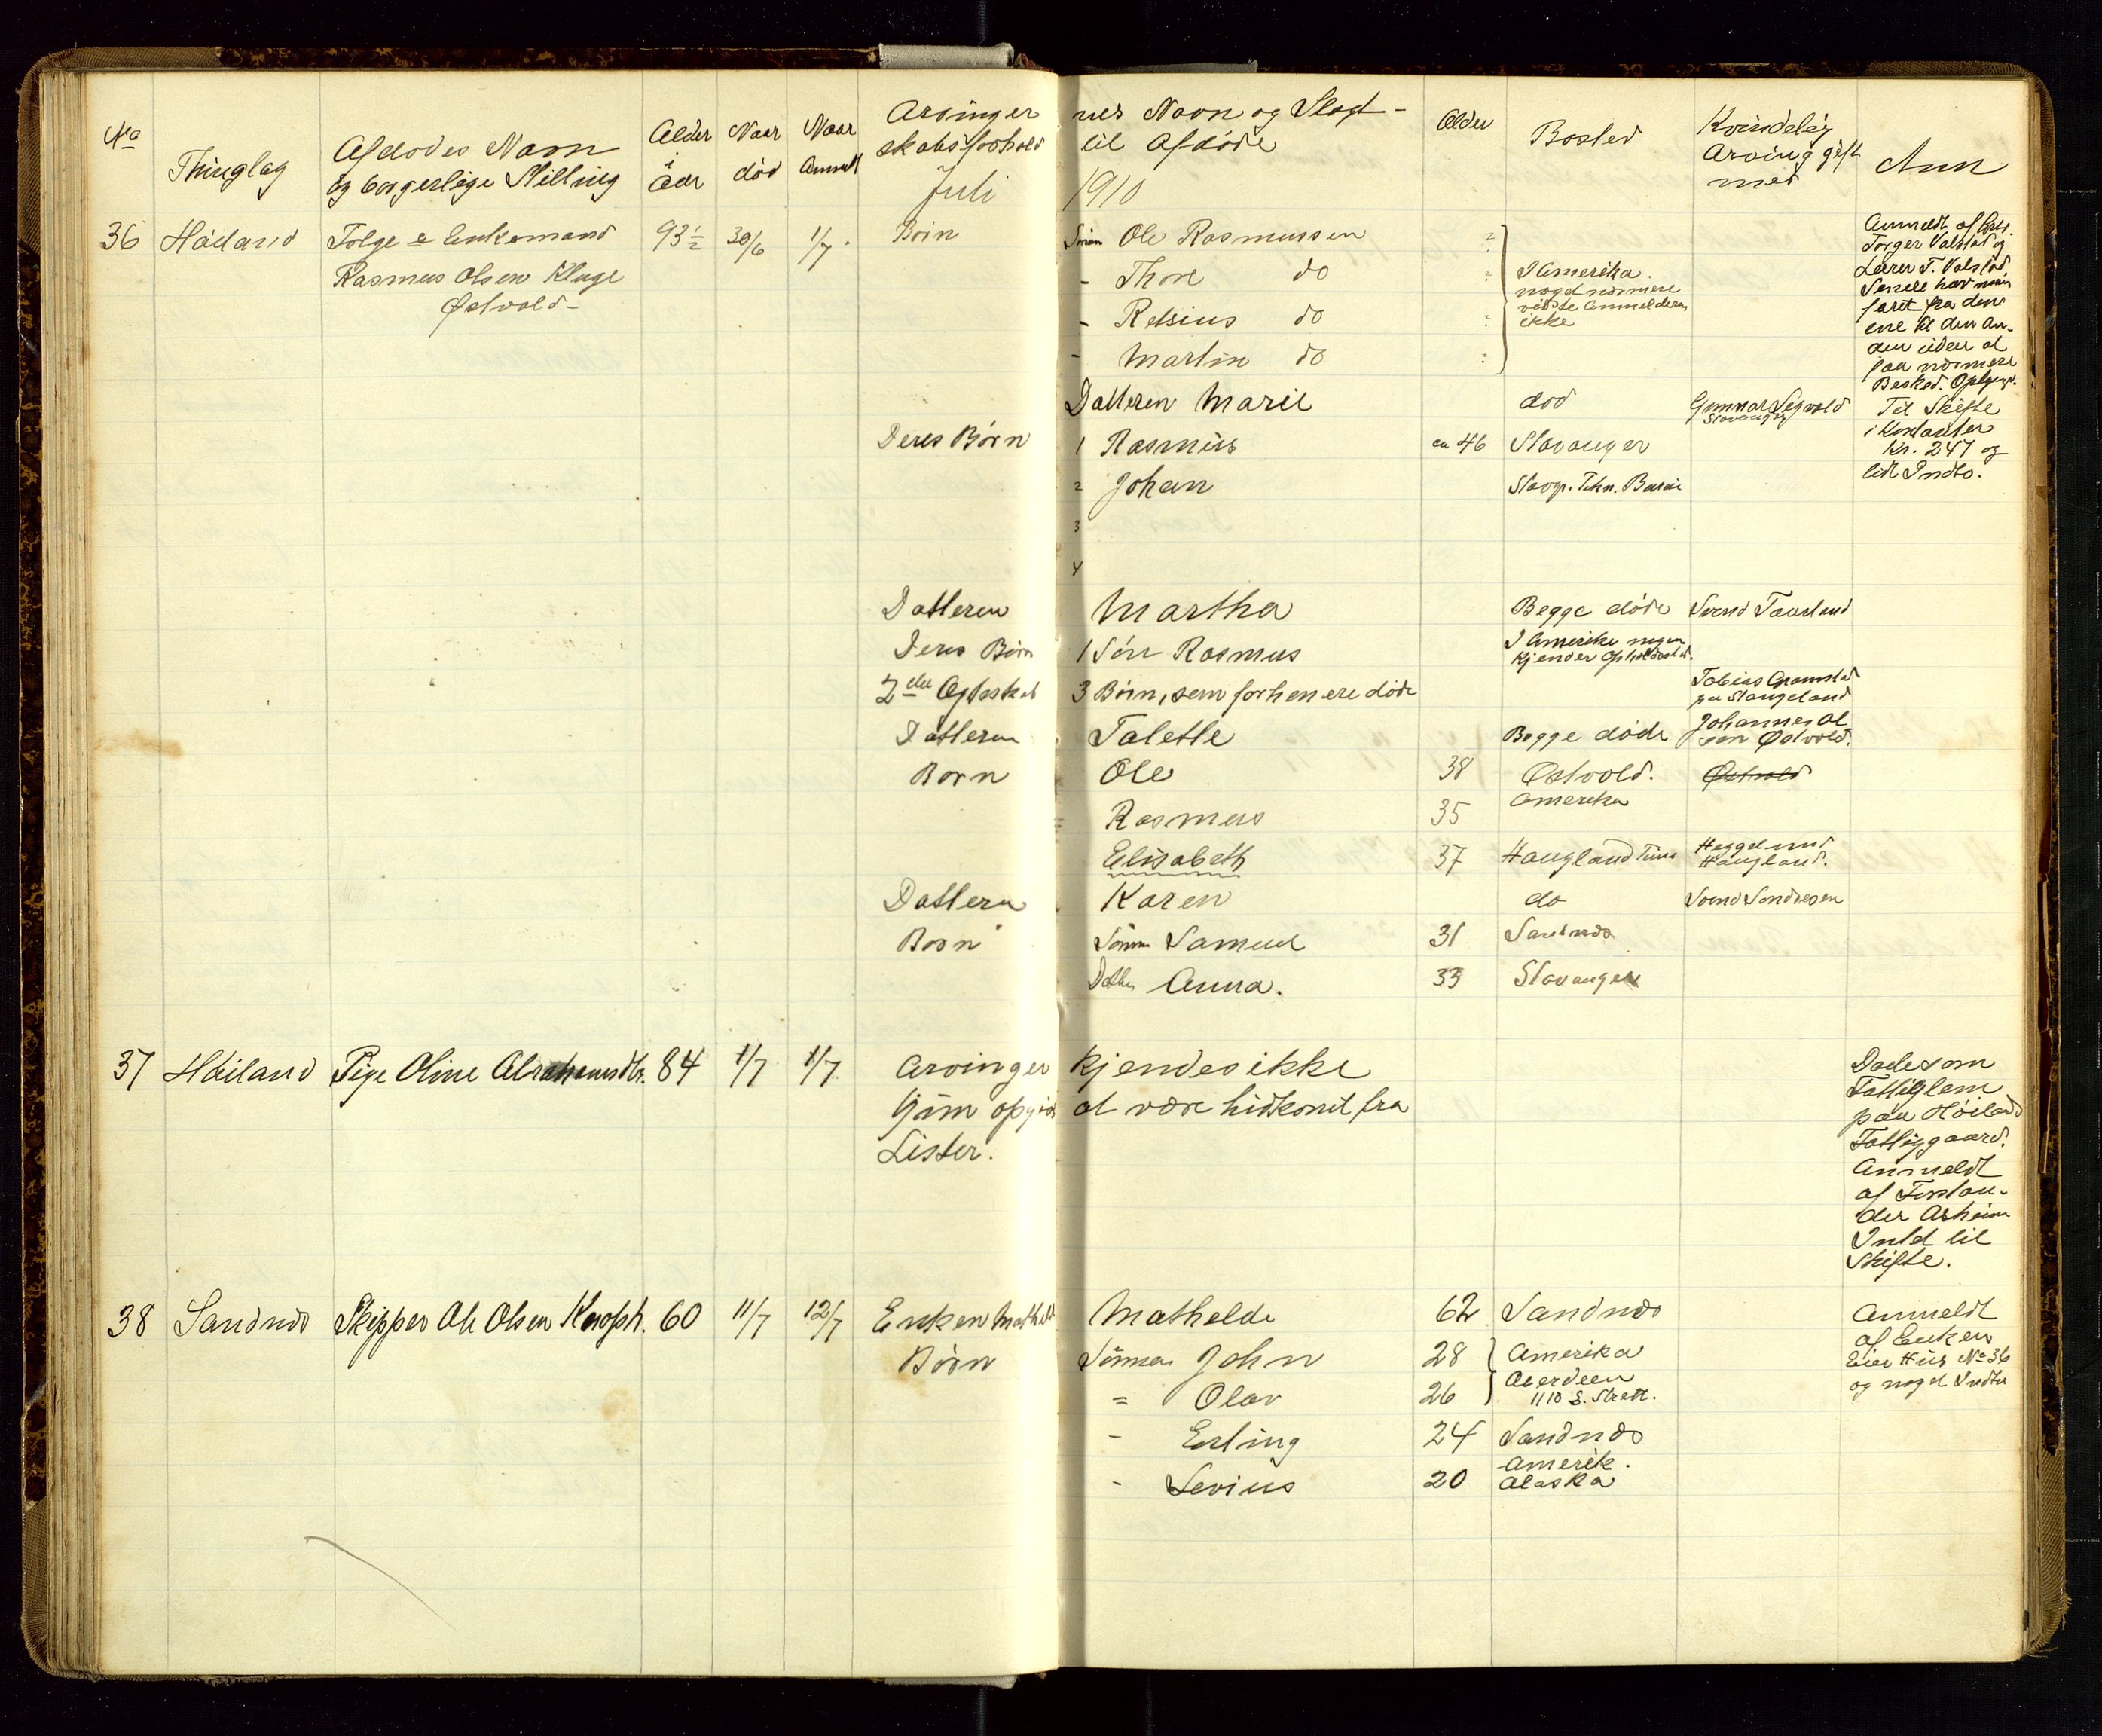 No Thinglag Afdødes Navn og borgerlige Stilling Alder i Aar Naar død Naar Anmeldt Arvingernes Navn og Slægtskabsforhold til Afdøde Alder Bosted Kvindelig Arving gift med Anm
Juli 1910
36 Høiland Enkemand 93½ 30/6 1/7 Børn Sønn Ole Rasmussen
Rasmus Olsen Kluge
Østvold
- Thore do
- Retsius do
- Martin do
I Amerika.
noget nærmere
vidste Anmelderen
ikke
Datteren Marie død Gunnar Segvold
Stavanger
Deres Børn 1 Rasmus ca 46 Stavanger
2 Johan
3
4
Datteren Martha Begge døde Svend Taarland
Deres Børn 1 Søn Rasmus I Amerika ingen
kjender Opholdssted.
2det Ægteskab 3 Børn, som forhen ere døde Tobias
paa Stangeland
Datteren Talette Begge døde Johannes Ol
sen Østvold.
Børn Ole 38 Østvold. Østvold
Rasmus 35 Amerika
Elisabeth 37 Haugland Time
Haugland.
Datteren Karen do Svend Sondresen
Børn Sønnen Samuel 31 Sandnæs
Datter Anna. 33 Stavanger
Anmeldt af
Torger Valstad og
Lærer T. Valstad
faret fra den
ene til den an-
den uden at
faa nærmere
Besked.
Til Skifte
i Kontanter
Kr. 247 og
lidt Indbo.
37 Høiland Pige Oline Abrahamsdtr. 84 1/7 1/7 Arvinger kjendes ikke
at være hidkomt fra
Lister.
Døde som
Fattiglem
paa Høiland
Fattiggaard.
Anmeldt
af Forstan-
der Asheim
Intet til
Skifte.
38 Sandnæs Skipper Ole Olsen 60 11/7 12/7 Enken Mathild Mathelde 62 Sandnæs
Børn Sønnen John 28 Amerika
= Olav 26 Aberdeen
1110 S. Street.
- Erling 24 Sandnæs
- Sevius 20 Amerik.
Alaska
Anmeldt
af Enken
Eier Hus No 36
og noget Indbo